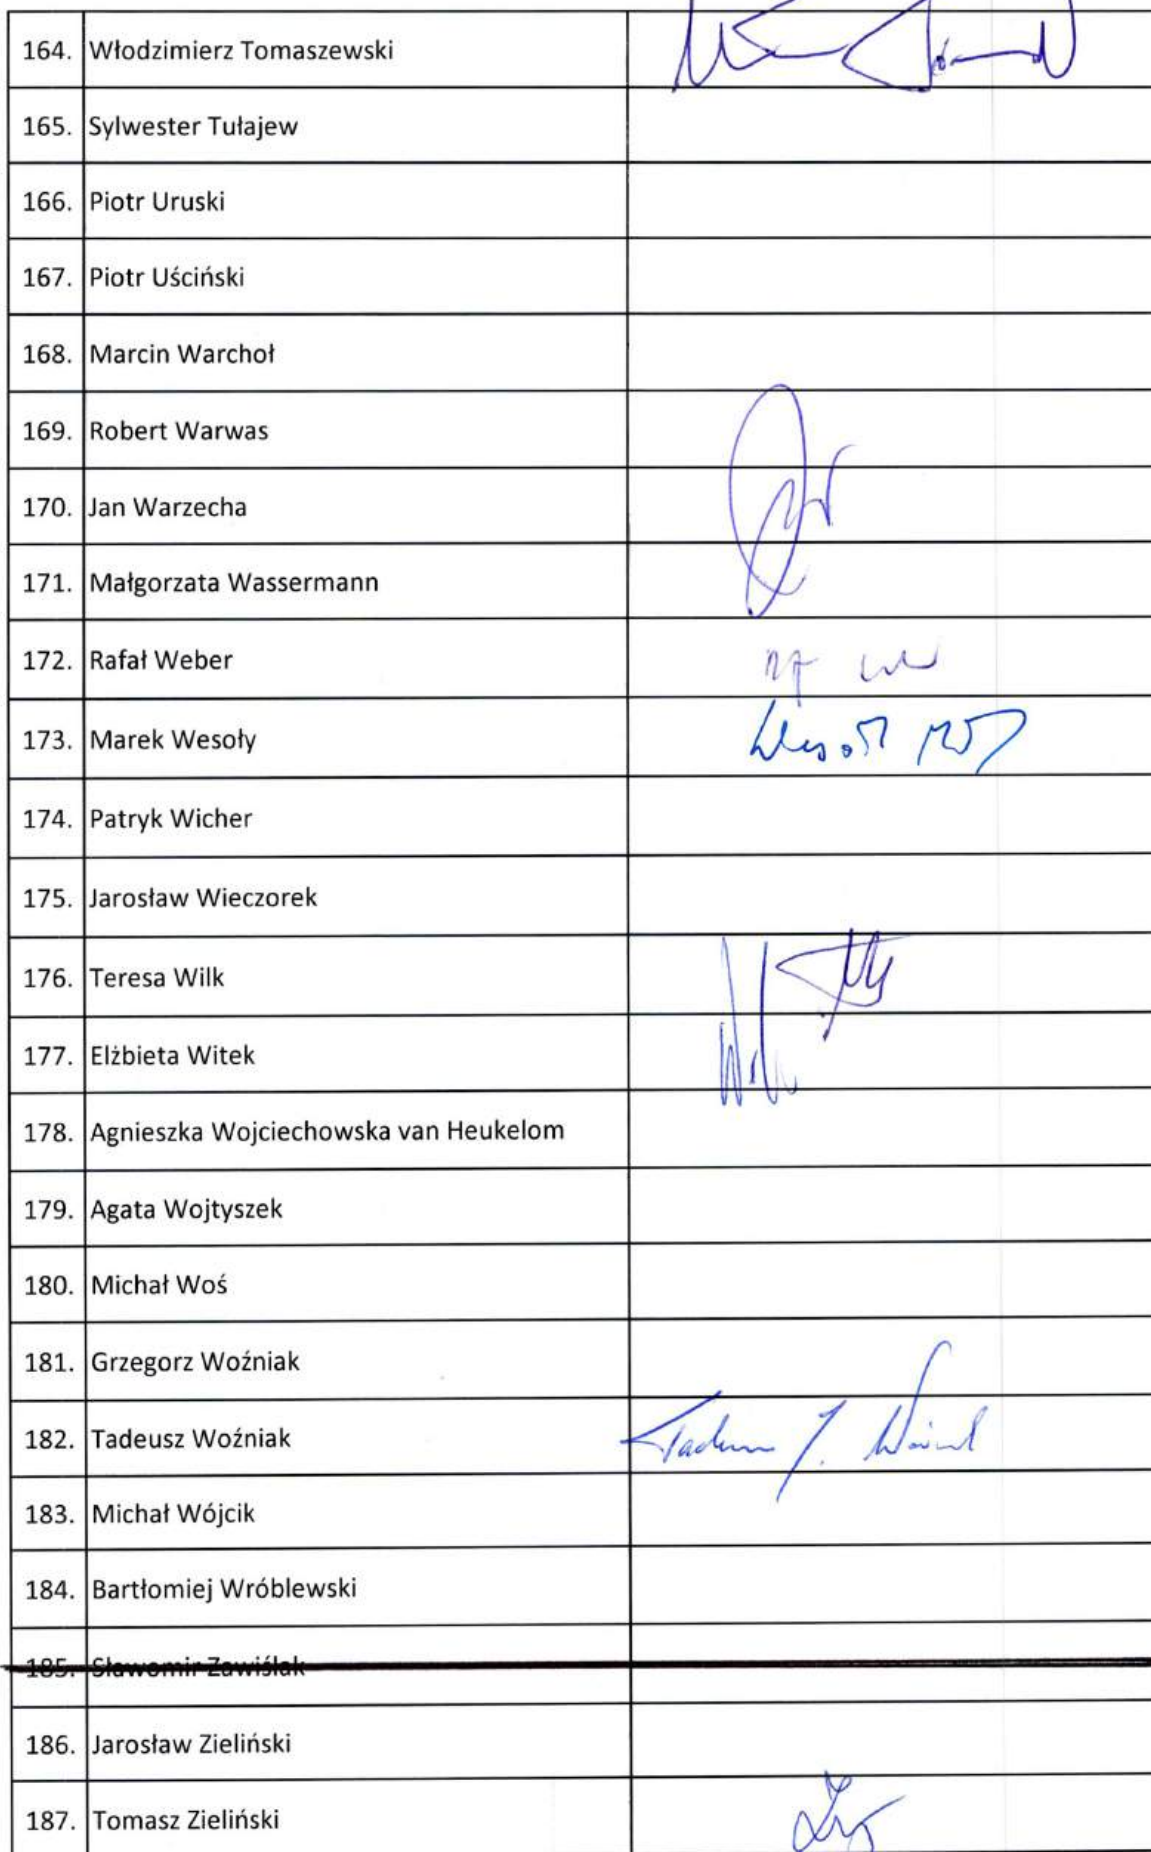 164. Włodzimierz Tomaszewski
165. Sylwester Tułajew
166. Piotr Uruski
167. Piotr Uściński
168. Marcin Warchoł
169. Robert Warwas
170. Jan Warzecha
171. Małgorzata Wassermann
172. Rafał Weber
173. Marek Wesoły
174. Patryk Wicher
175. Jarosław Wieczorek
176. Teresa Wilk
177. Elżbieta Witek
178. Agnieszka Wojciechowska van Heukelom
179. Agata Wojtyszek
180. Michał Woś
181. Grzegorz Woźniak
182. Tadeusz Woźniak
183. Michał Wójcik
184. Bartłomiej Wróblewski
185. Sławomir Zawiślak
186. Jarosław Zieliński
187. Tomasz Zieliński